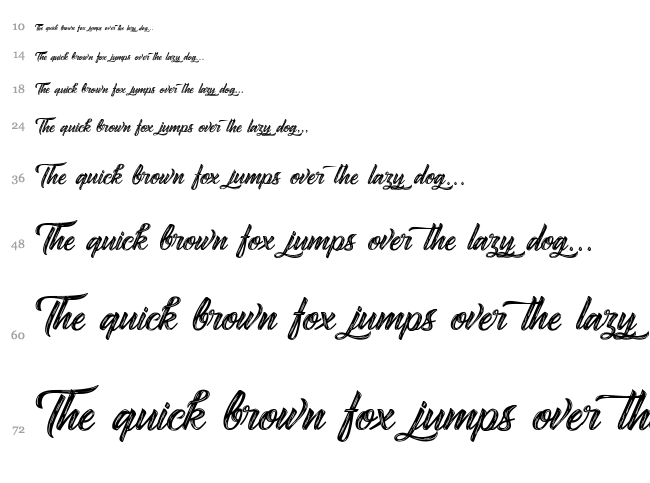 10 The quick brown fox jumps over the lazy dog...
14 The quick brown fox jumps over the lazy dog...
18 The quick brown fox jumps over the lazy dog...
24 The quick brown fox jumps over the lazy dog...
36 The quick brown fox jumps over the lazy dog...
48 The quick brown fox jumps over the lazy dog...
60 The quick brown fox jumps over the lazy
72 The quick brown fox jumps over th